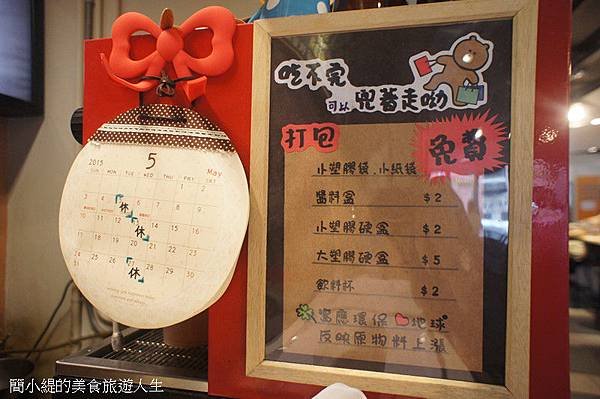 2015 5 May
SUN MON TUE WED THU FRI SAT
1 2
3 4 5 6 7 8 9
10 11 12 13 14 15 16
17 18 19 20 21 22 23
24 25 26 27 28 29 30
31
休
休
休
吃不完
可以兜著走喲
打包
免費
小塑膠袋、小紙袋
醬料盒 $2
小塑膠硬盒 $2
大塑膠硬盒 $5
飲料杯 $2
響應環保 地球
反映原物料上漲
簡小緹的美食旅遊人生